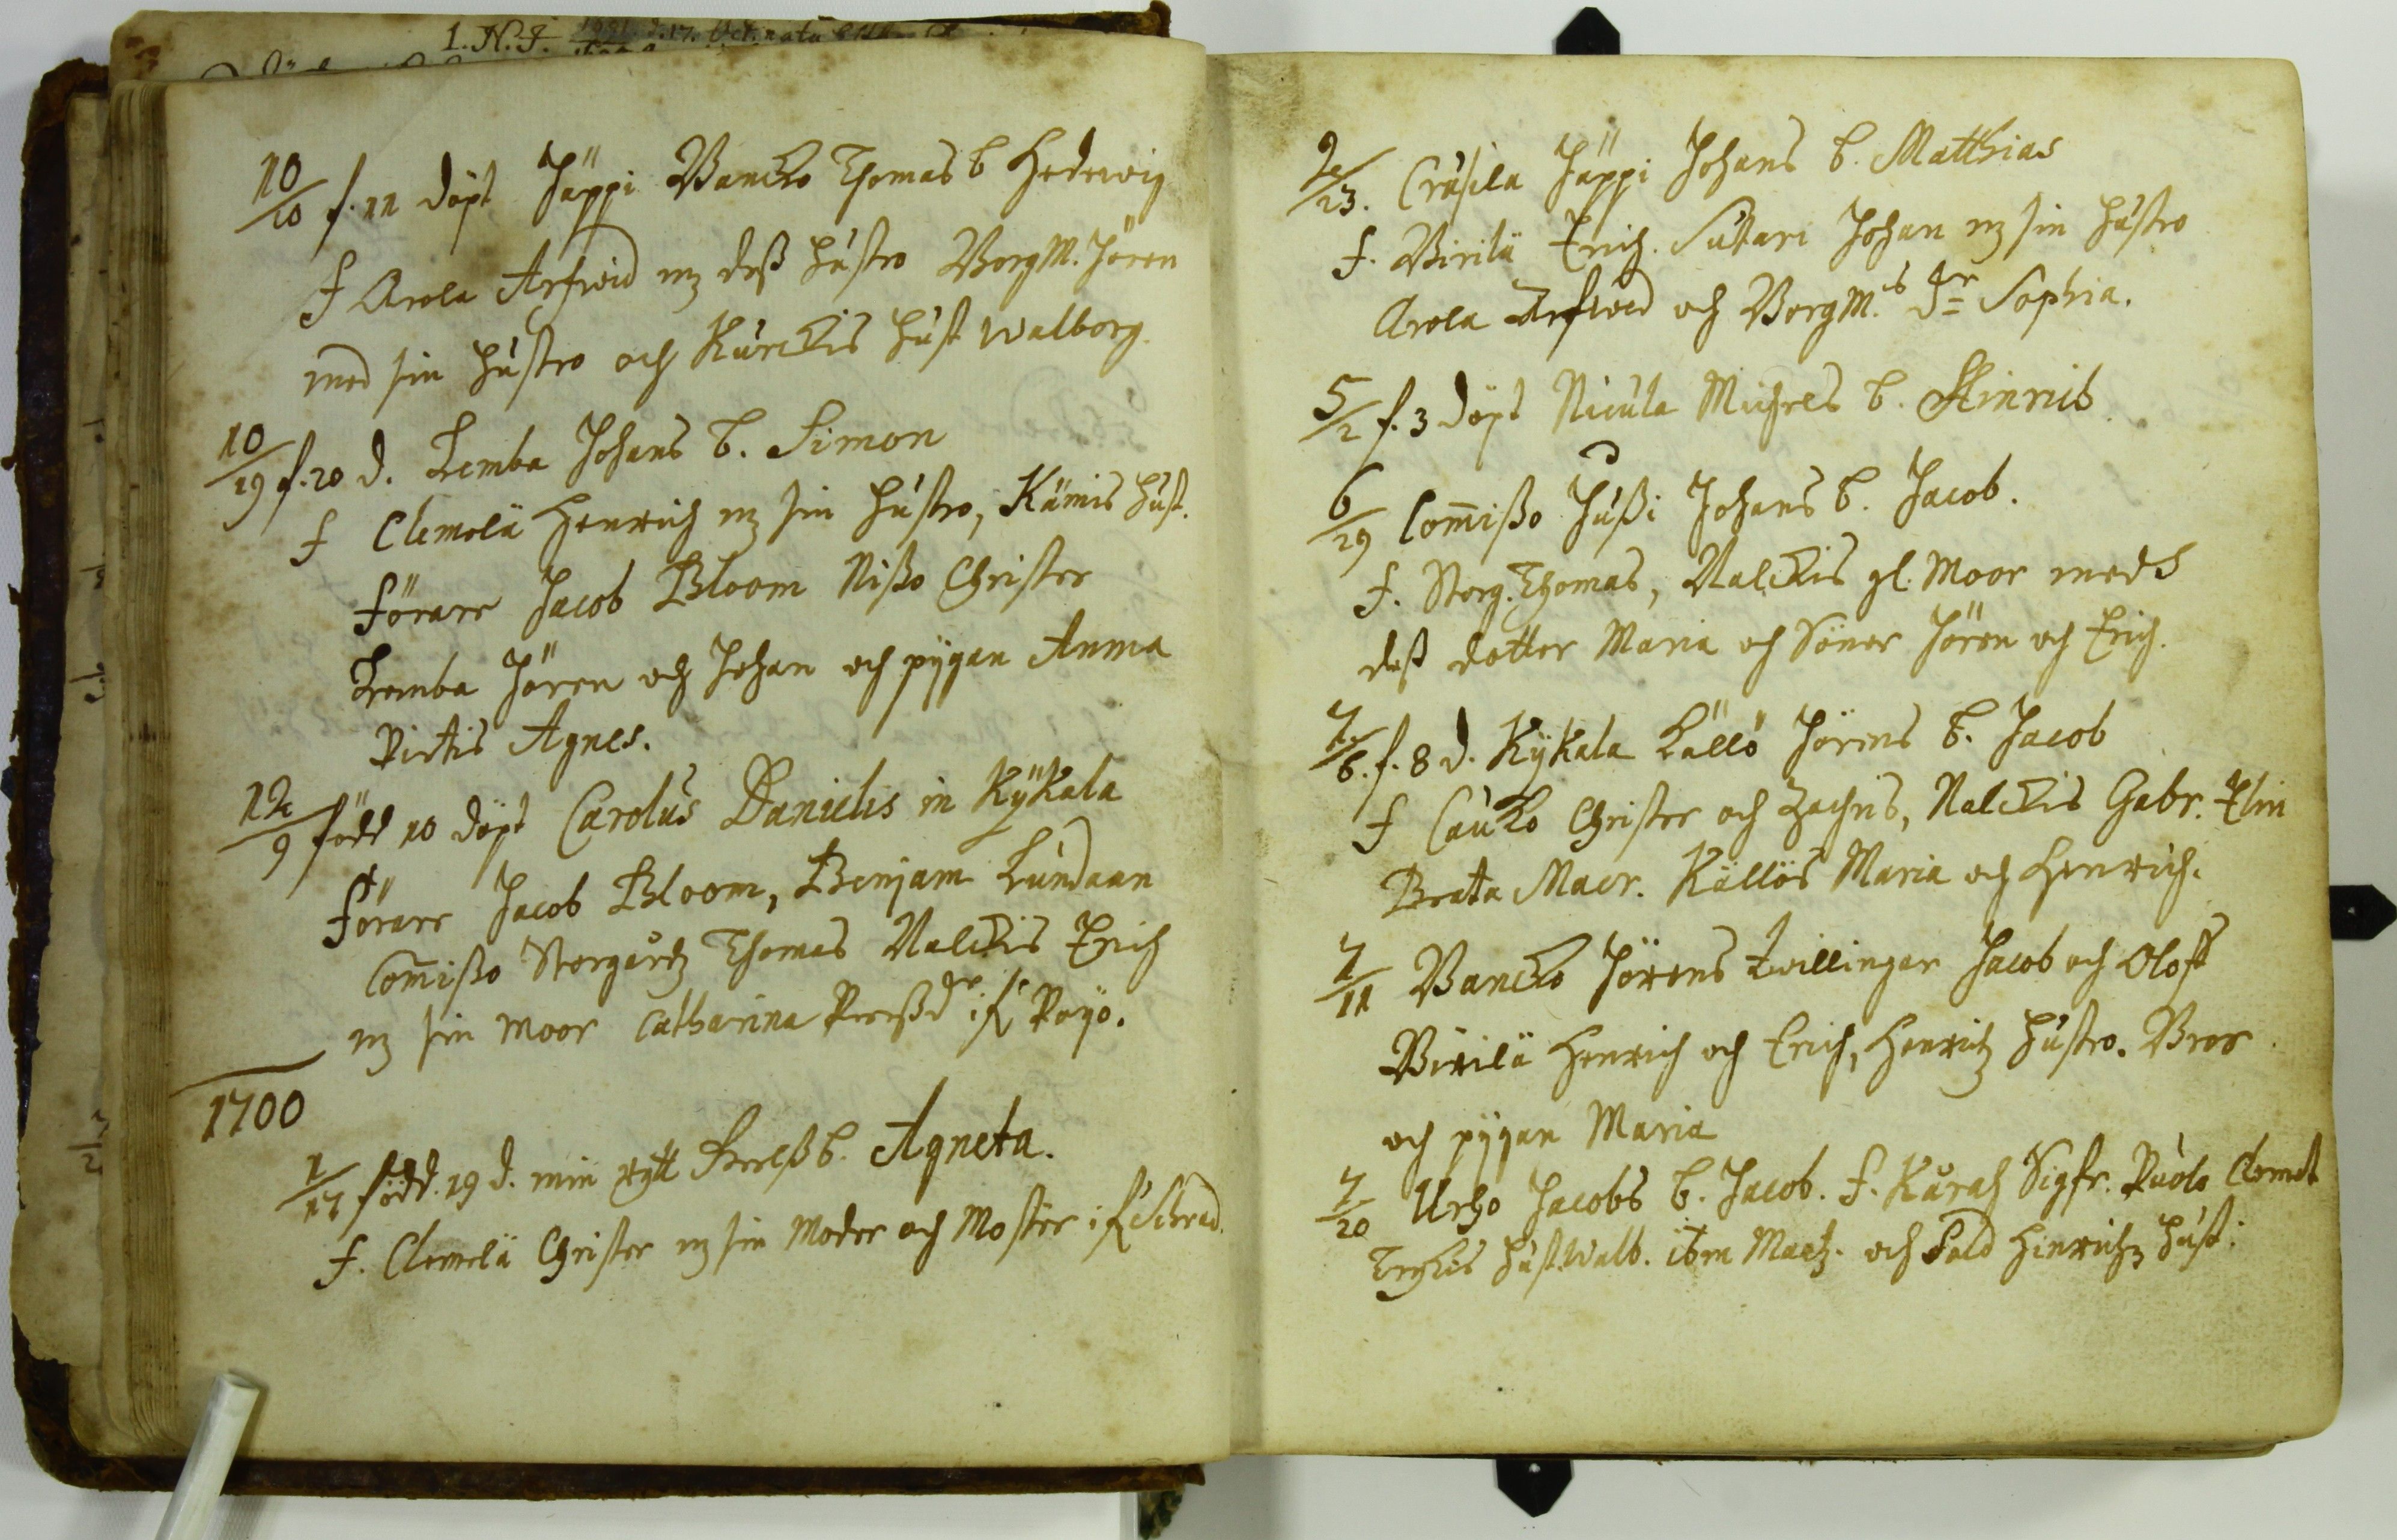 1. N. I.
10/10 f. 11 döpt Jäppi Vancko Thomas b Hedewig
f Arola Arfwid mz dess hustro BorgM. Jören
med sin hustro och Kurckis hust Walborg.
10/19 f. 20 d. Lemba Johans b. Simon
f Clemolä Henrich mz sin hustro, Kämis hust.
förare Jacob Bloom Nisso Christer
Lemba Jören och Johan och pÿgan Anna
Pirtis Agnes.
12/9 född 10 döpt Carolus Danielis in Kÿkala
förare Jacob Bloom, Benjam Lundaan
Com̄isso Storgårdz Thomas Nalckis Erich
mz sin moor Catharina
1700
1/17 född. 19 d. min b. Agneta.
f. Clemelä Christer mz sin Moder och Moster
2/23. Crusila Jäppi Johans b. Matthias
f. Virilä Erich. Sutari Johan mz sin hustro
Arola Arfwed och BorgM.s dr Sophia.
5/2 f. 3 döpt Nicula Michels b. Hinric
6/29 Com̄isso Jussi Johans b. Jacob.
f. Storg. Thomas, Nalckis gl. Moor meds
dess dotter Maria och Söner Jören och Erich.
7/6. f. 8 d. Kÿkala Källö Jörens b. Jacob
f Caucko Christer och Zachris, Nalckis Gabr. Elin
Beata Maer. Källös Maria och Henrich.
7/11 Vancko Jörens twillingar Jacob och Oloff
Virilä Henrich och Erich, Henrichz hustro. Bror
och pÿgan Maria
7/20 Urho Jacobs b. Jacob. f. Sigfr. Clemet
hust. Walb. ibm Mattz. och Sold Hinrichz hust.